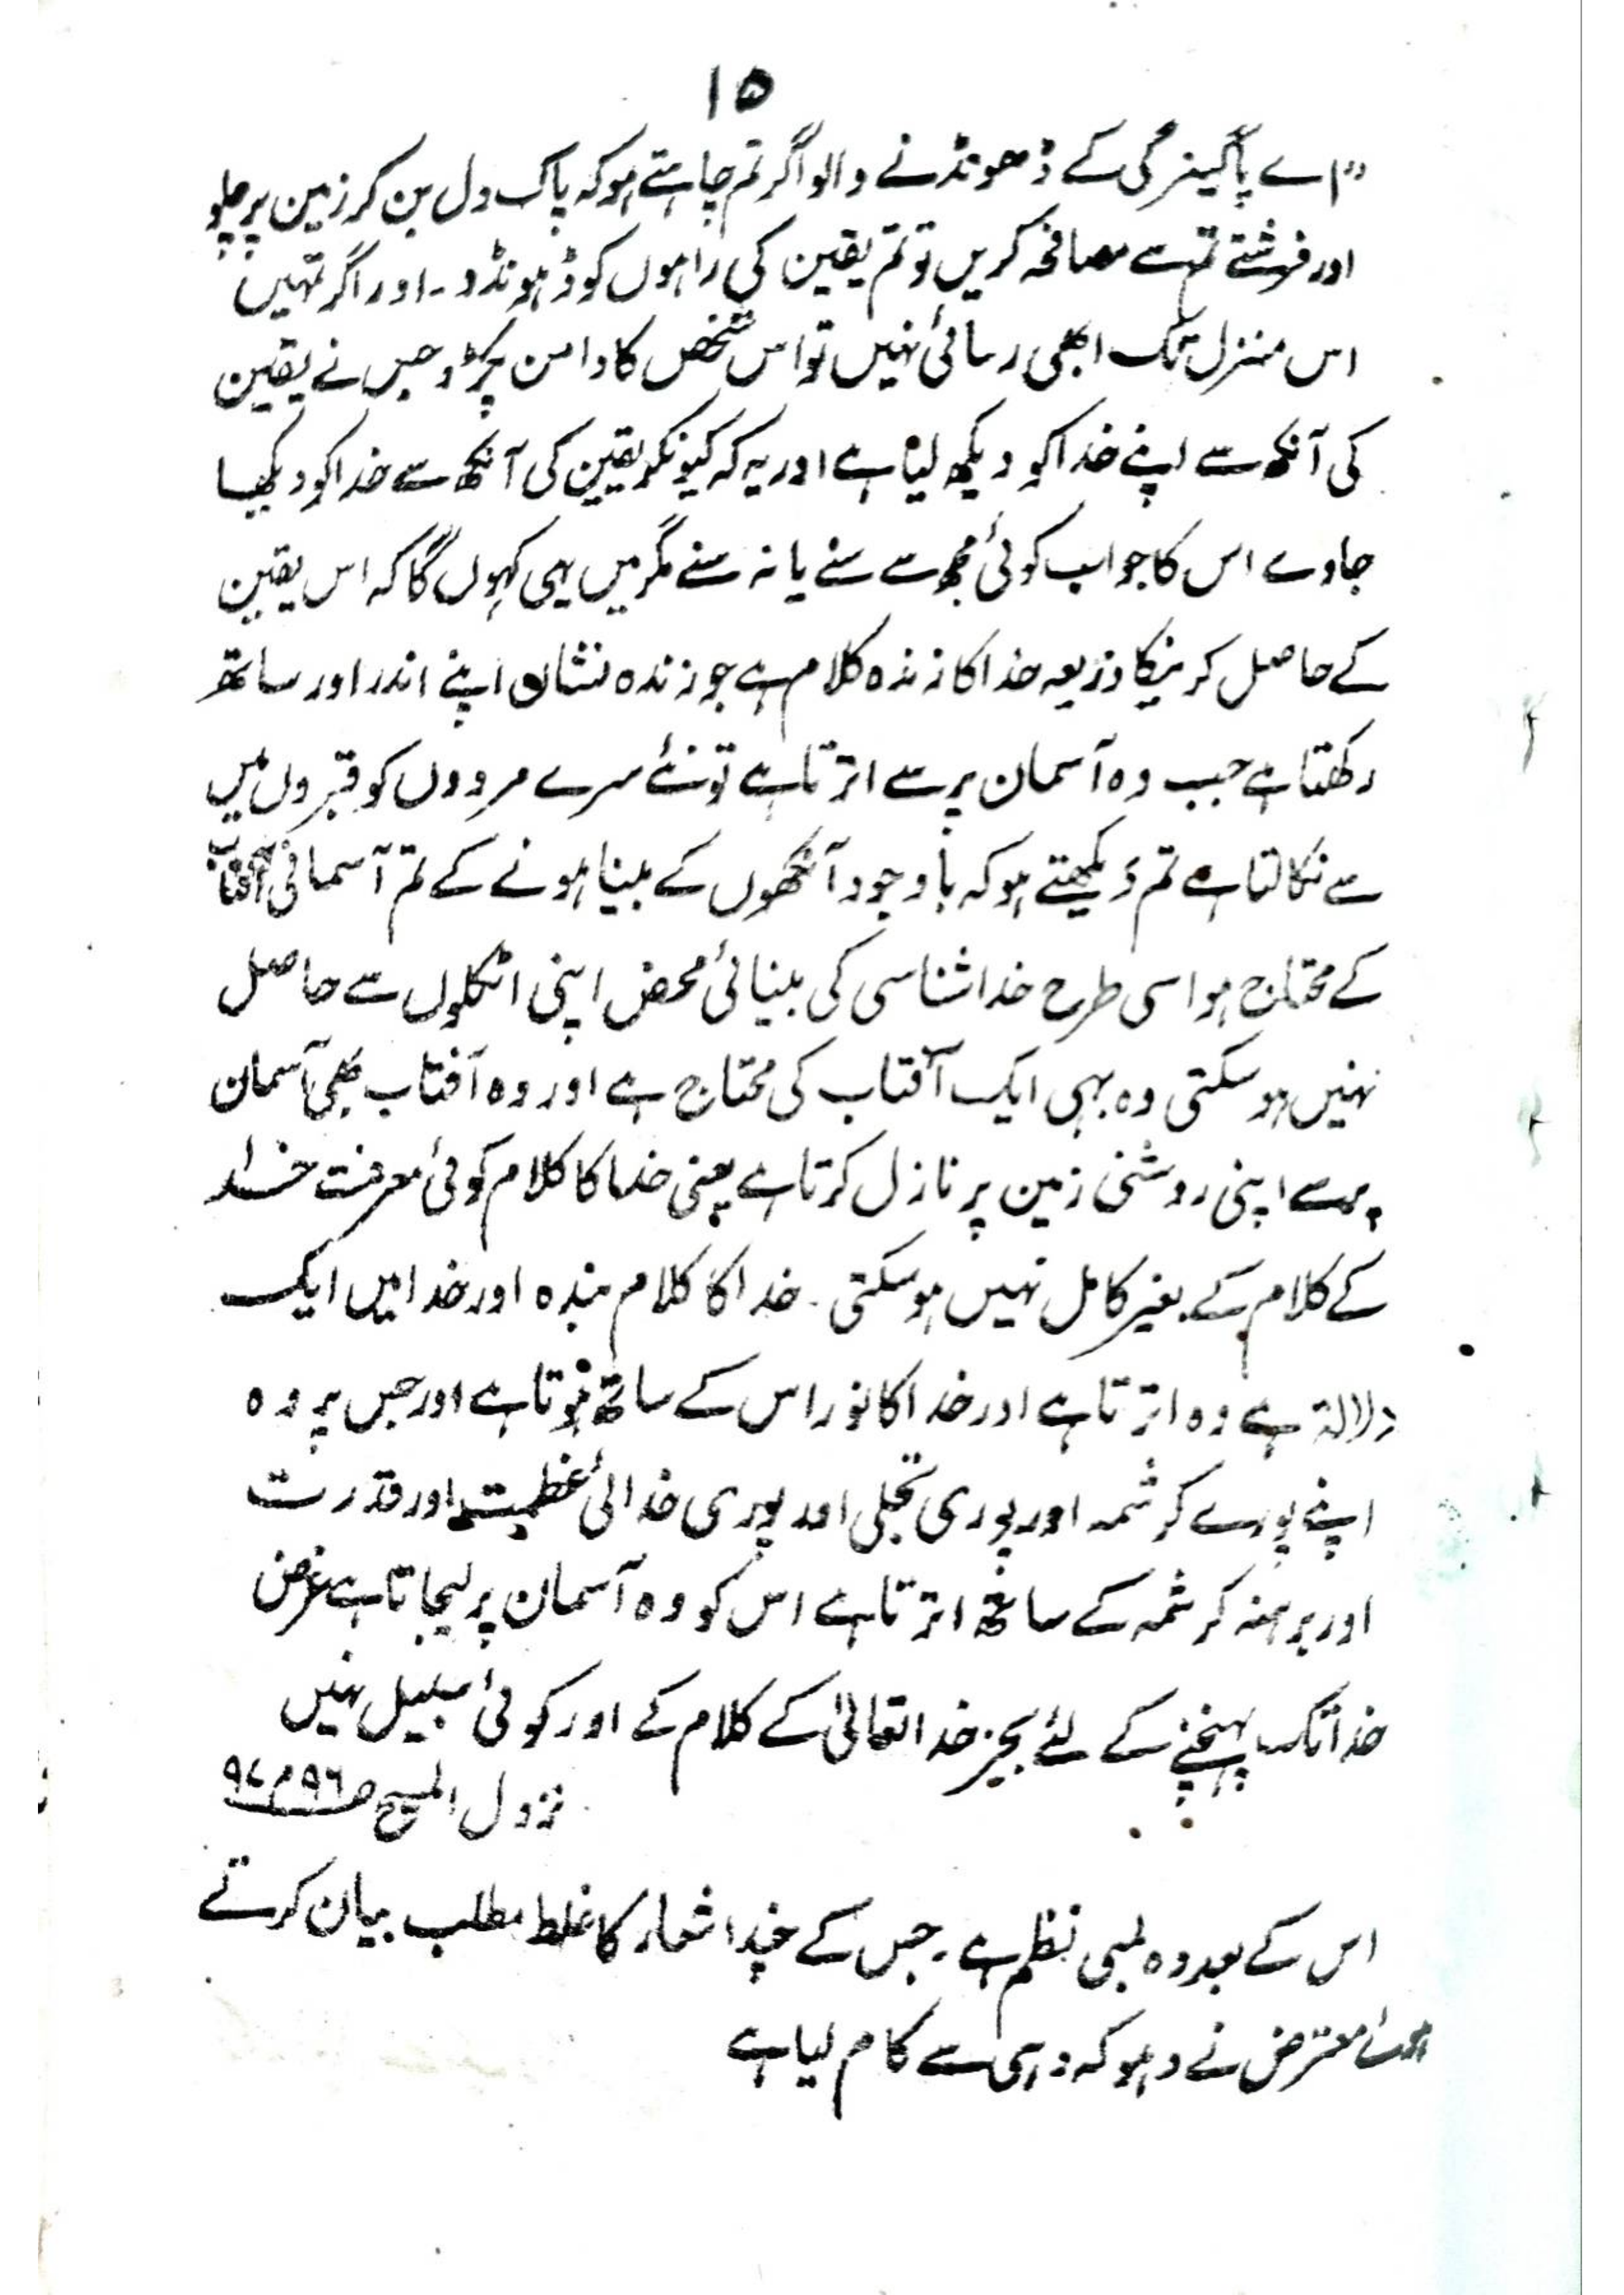 ۱۵
"اے پاکیزگی کے ڈھونڈنے والو اگر تم چاہتے ہو کہ پاک دل بن کر زمین پر چلو
اور فرشتے تم سے مصافحہ کریں تو تم یقین کی راہوں کو ڈہونڈو۔ اور اگر تمہیں
اس منزل تک ابھی رسائی نہیں تو اس شخص کا دامن پکڑو جس نے یقین
کی آنکھ سے اپنے خدا کو دیکھ لیا ہے اور یہ کہ کیونکر یقین کی آنکھ سے خدا کو دیکھا
جاوے اس کا جواب کوئی مجھ سے سنے یا نہ سنے مگر میں یہی کہوں گا کہ اس یقین
کے حاصل کرنیکا ذریعہ خدا کا زندہ کلام ہے جو زندہ نشان اپنے اندر اور ساتھ
رکھتا ہے جب وہ آسمان پر سے اترتا ہے تو نئے سرے مردوں کو قبروں میں
سے نکالتا ہے تم دیکھتے ہو کہ باوجود آنکھوں کے بینا ہونے کے تم آسمانی آفتاب
کے محتاج ہو اسی طرح خدا شناسی کی بینائی محض اپنی اٹکلوں سے حاصل
نہیں ہو سکتی وہ بہی ایک آفتاب کی محتاج ہے اور وہ آفتاب بھی آسمان
پر سے اپنی روشنی زمین پر نازل کرتا ہے یعنی خدا کا کلام کوئی معرفت خدا
کے کلام کے بغیر کامل نہیں ہو سکتی۔ خدا کا کلام بندہ اور خدا میں ایک
دلالۃ ہے وہ اترتا ہے اور خدا کا نور اس کے ساتھ ہوتا ہے اور جس پر وہ
اپنے پورے کرشمہ اور پوری تجلی اور پوری خدائی عظمت اور قدرت
اور برہنہ کرشمہ کے ساتھ اترتا ہے اس کو وہ آسمان پر لیجاتا ہے غرض
خدا تک پہنچنے کے لئے بجز خدا تعالیٰ کے کلام کے اور کوئی سبیل نہیں
نزول المسیح ص۹۶، ۹۷
اس کے بعد وہ لمبی نظم ہے۔ جس کے چند اشعار کا غلط مطلب بیان کرتے
ہوئے معترض نے دہوکہ دہی سے کام لیا ہے